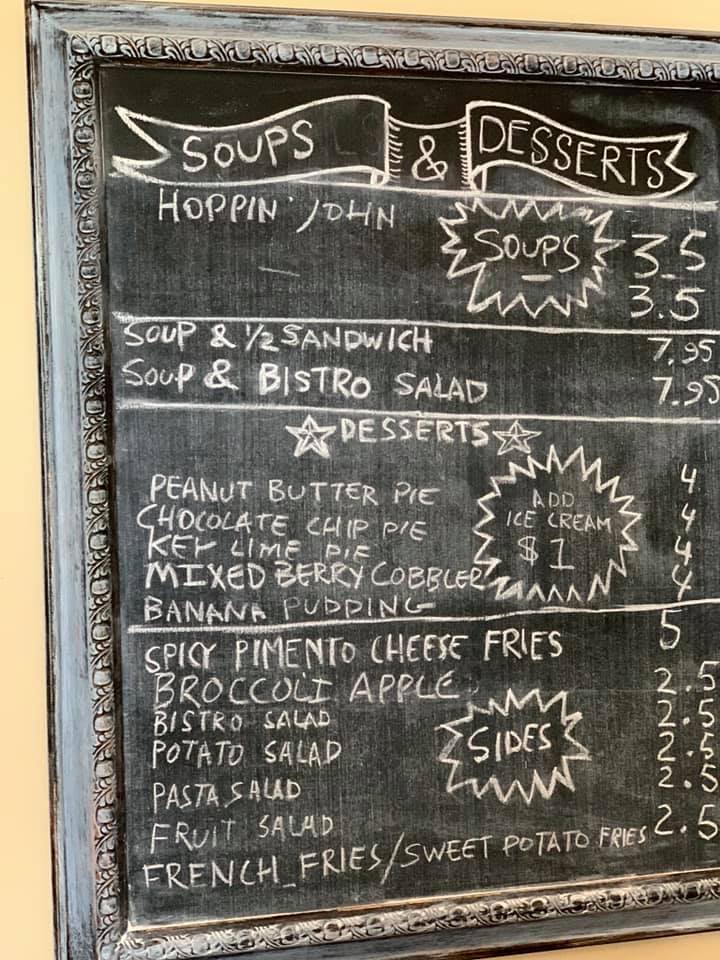 SOUPS & DESSERTS
HOPPIN' JOHN
SOUPS
3.5
3.5
SOUP & 1/2 SANDWICH 7.95
SOUP & BISTRO SALAD 7.95
DESSERTS
PEANUT BUTTER PIE 4
CHOCOLATE CHIP PIE 4
KEY LIME PIE 4
MIXED BERRY COBBLER 4
BANANA PUDDING
ADD
ICE CREAM
$1
SPICY PIMENTO CHEESE FRIES 5
BROCCOLI APPLE 2.5
BISTRO SALAD 2.5
POTATO SALAD 2.5
PASTA SALAD 2.5
FRUIT SALAD 2.5
SIDES
FRENCH FRIES/SWEET POTATO FRIES